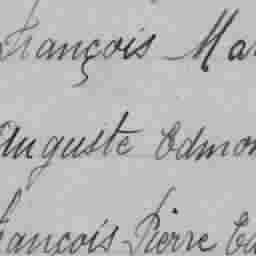 François Mar
Auguste Edmon
François Pierre Ed